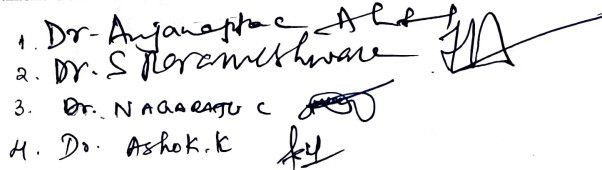 1. Dr. Anjanappa C
2. Dr. S Parameshwara
3. Dr. NAGARAJU C
4. Dr. Ashok.K